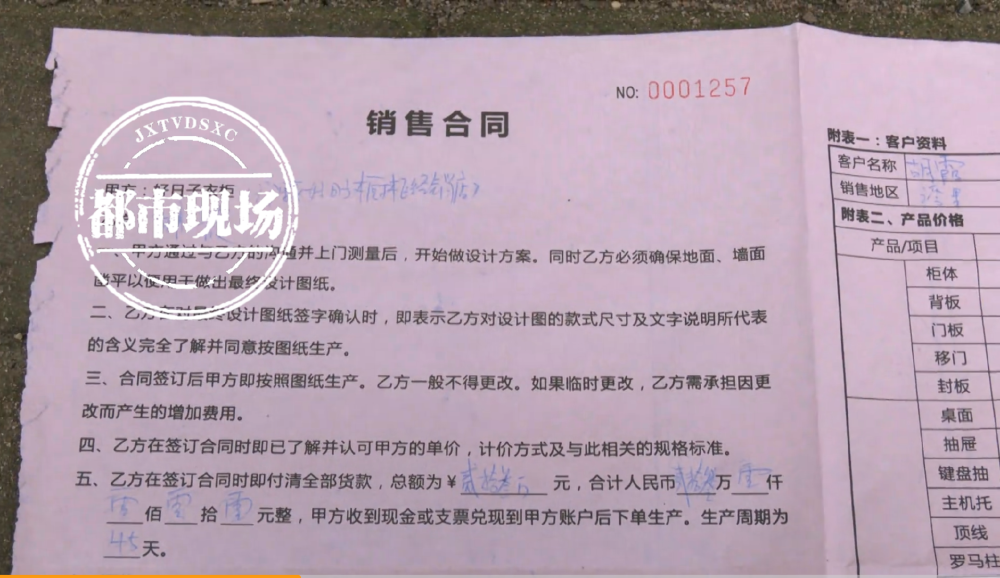 JXTVDSXC
都市现场
NO: 0001257
销售合同
甲方：好月子衣柜
一、甲方通过与乙方的沟通并上门测量后，开始做设计方案。同时乙方必须确保地面、墙面
平以便用于做出最终设计图纸。
二、乙方在对最终设计图纸签字确认时，即表示乙方对设计图的款式尺寸及文字说明所代表
的含义完全了解并同意按图纸生产。
三、合同签订后甲方即按照图纸生产。乙方一般不得更改。如果临时更改，乙方需承担因更
改而产生的增加费用。
四、乙方在签订合同时即已了解并认可甲方的单价，计价方式及与此相关的规格标准。
五、乙方在签订合同时即付清全部货款，总额为￥贰拾叁万元，合计人民币贰拾叁万零仟
零佰零拾零元整，甲方收到现金或支票兑现到甲方账户后下单生产。生产周期为
45天。
附表一：客户资料
客户名称 胡霞
销售地区 湾里
附表二、产品价格
产品/项目
柜体
背板
门板
移门
封板
桌面
抽屉
键盘抽
主机托
顶线
罗马柱